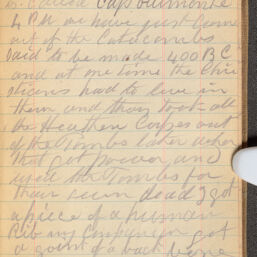 is called Cap
4 P.M. we have just come
out of the Catacombs
Said to be made 400 B C
and at one time the Chri
stians had to live in
them and they took all
the Heathen Corpes out
of the Tombs later when
that got power and
used the Tombs for
their own dead I got
a piece of a human
Rib my Companion got
a joint of a back bone